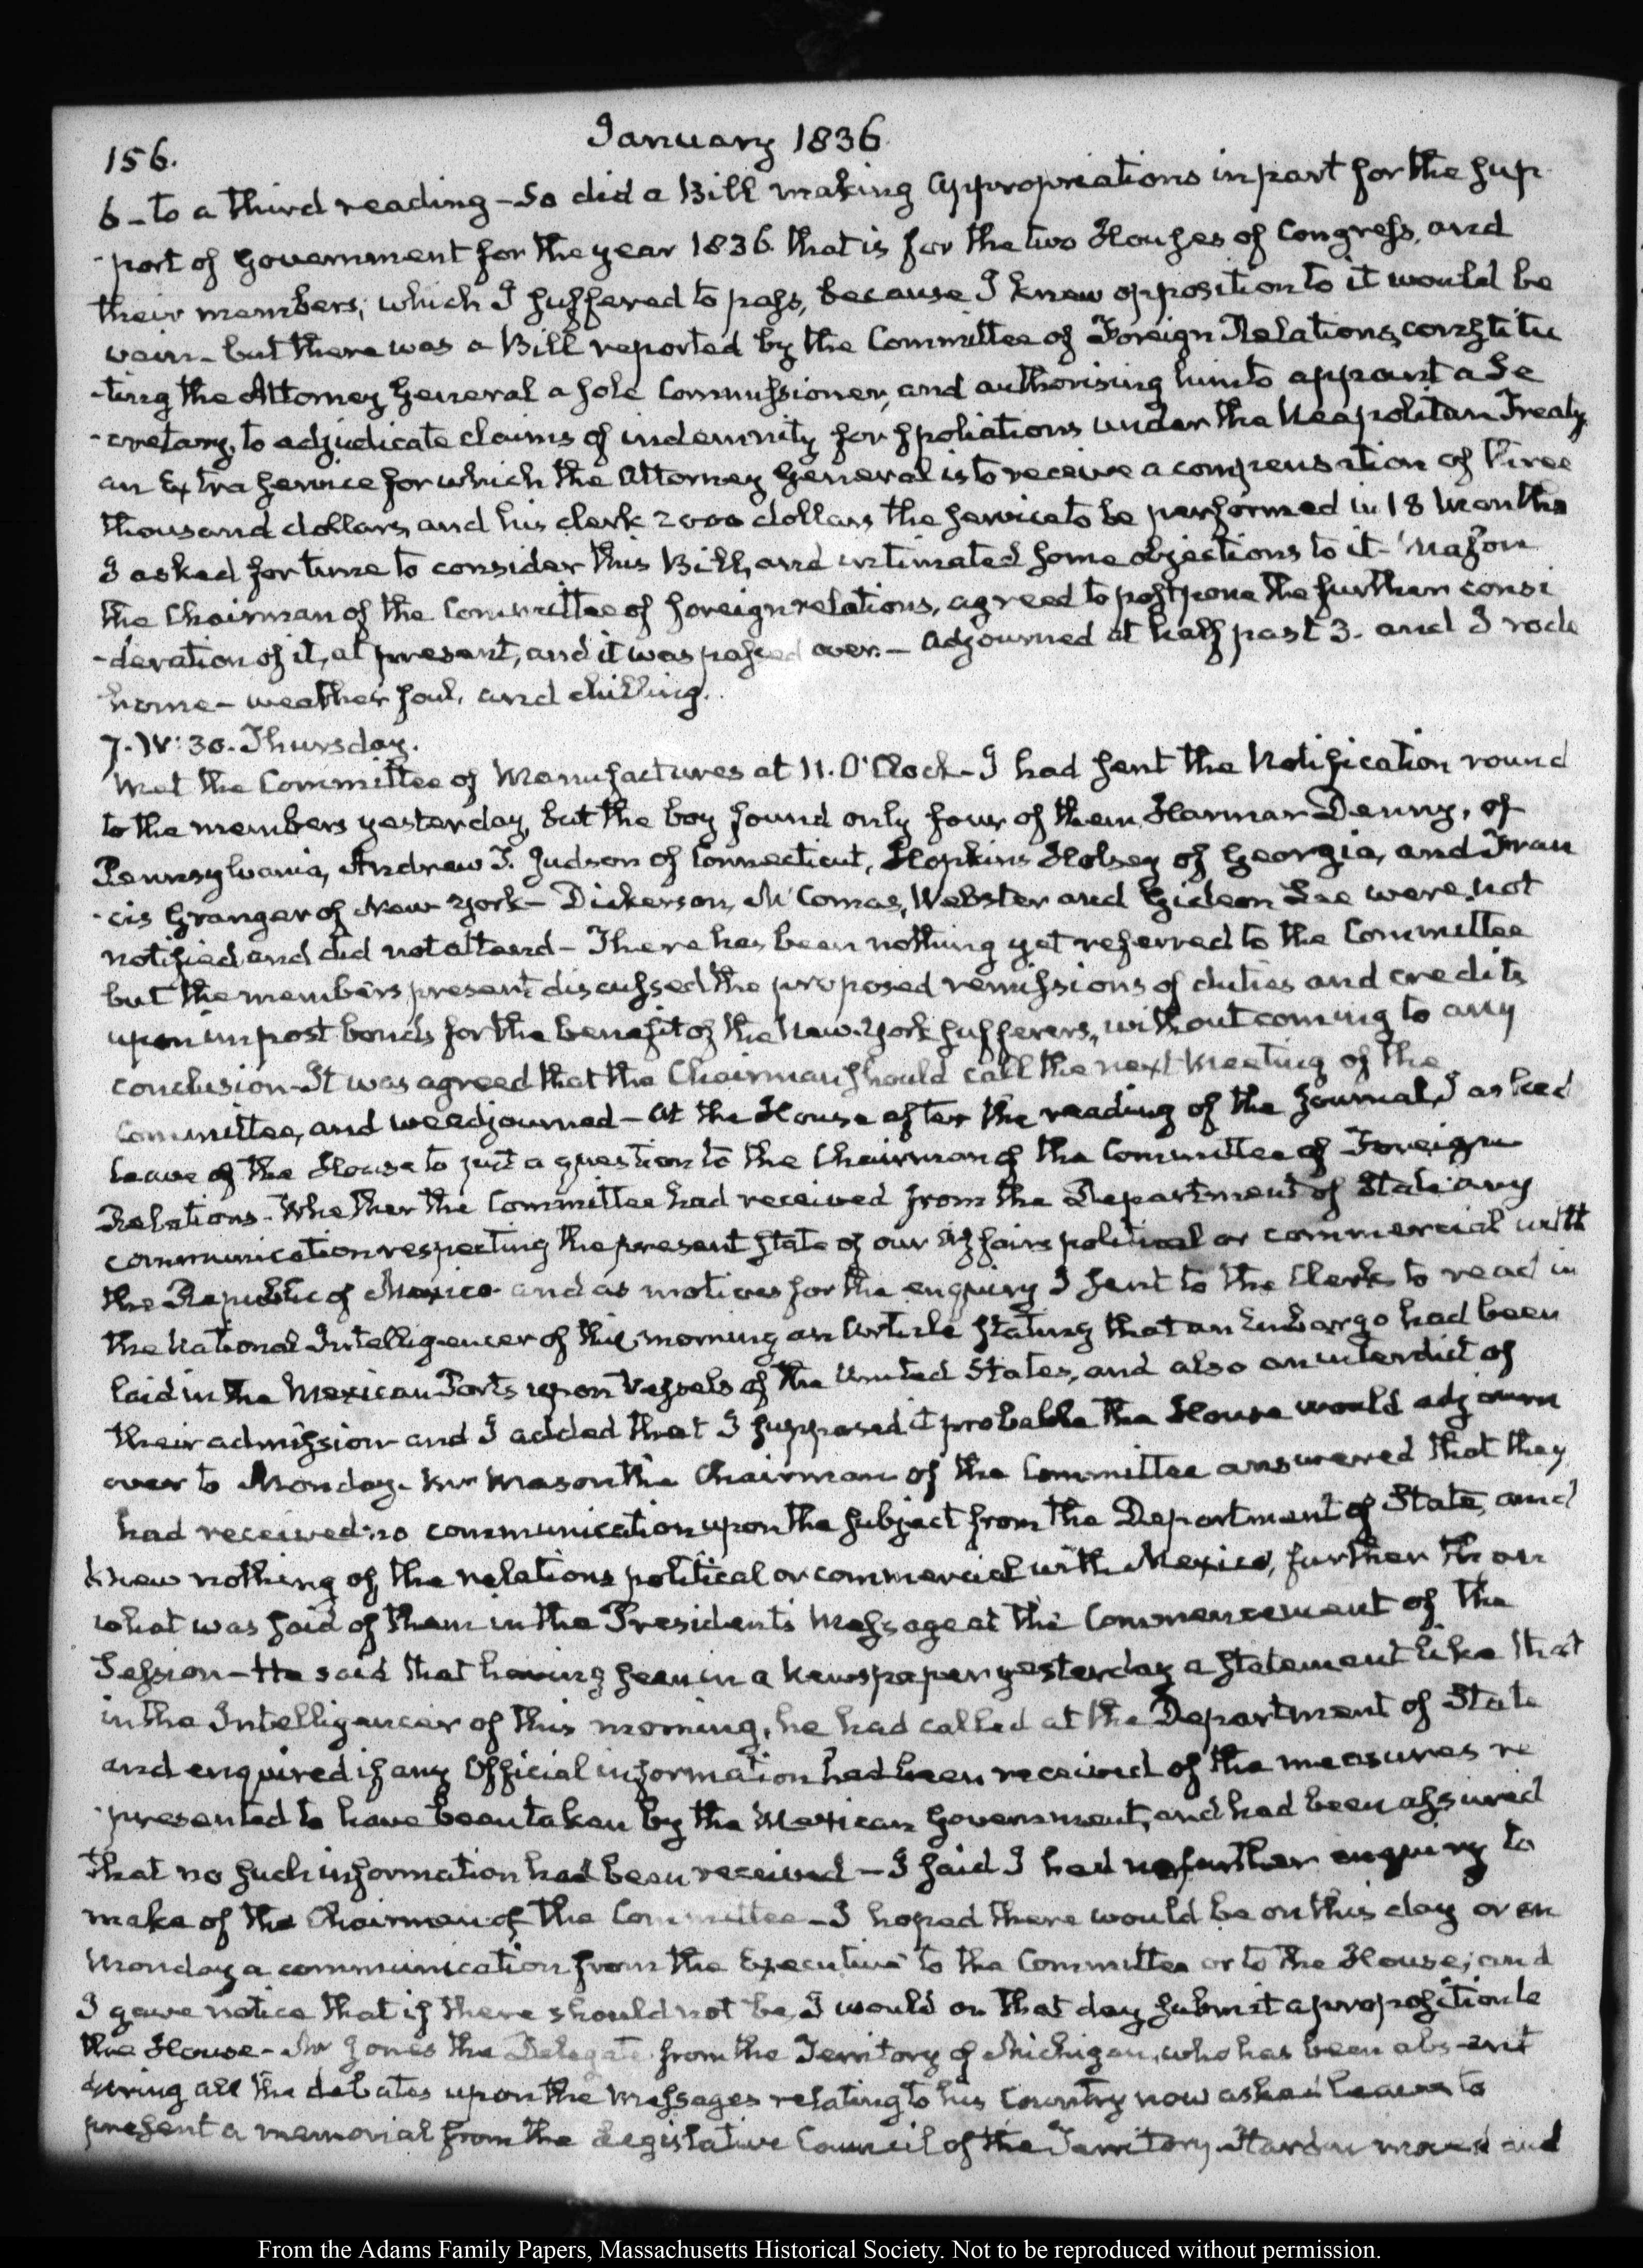 156.
January 1836
6 - to a third reading - So did a Bill making appropriations in part for the sup
-port of Government for the year 1836. that is for the two Houses of Congress, and
their members; which I suffered to pass, because I knew opposition to it would be
vain - but there was a Bill reported by the Committee of Foreign Relations, constitu
-ting the Attorney General a sole Commissioner, and authorising him to appoint a Se
-cretary, to adjudicate claims of indemnity for spoliations under the Neapolitan Treaty
an Extra service for which the Attorney General is to receive a compensation of three
thousand dollars, and his clerk 2000 dollars the service to be performed in 18 Months
I asked for time to consider this Bill, and intimated some objections to it - Mason
the Chairman of the Committee of foreign relations, agreed to postpone the further consi
-deration of it, at present, and it was passed over. - Adjourned at half past 3. and I rode
home - weather foul, and chilling.
7. IV: 30. Thursday.
Met the Committee of Manufactures at 11. O'Clock - I had sent the Notification round
to the members yesterday, but the boy found only four of them, Harmar Denny, of
Pennsylvania, Andrew T. Judson of Connecticut, Hopkins Holsey of Georgia, and Fran
-cis Granger of New York - Dickerson, McComas, Webster and Gideon Lee were not
notified and did not attend - There has been nothing yet referred to the Committee
but the members present discussed the proposed remissions of duties and credits
upon impost bonds for the benefit of the New-York sufferers, without coming to any
conclusion - It was agreed that the Chairman should call the next meeting of the
Committee, and we adjourned - At the House after the reading of the Journal, I asked
leave of the House to put a question to the Chairman of the Committee of Foreign
Relations - Whether the Committee had received from the Department of State any
communication respecting the present state of our affairs political or commercial with
the Republic of Mexico and as motives for the enquiry I sent to the Clerk to read in
the National Intelligencer of this morning an Article stating that an Embargo had been
laid in the Mexican Ports upon Vessels of the United States, and also an interdict of
their admission and I added that I supposed it probable the House would adjourn
over to Monday. Mr Mason the Chairman of the Committee answered that they
had received no communication upon the subject from the Department of State, and
knew nothing of the relations political or commercial with Mexico, further than
what was said of them in the President's Message at the Commencement of the
Session - He said that having seen in a Newspaper yesterday a statement like that
in the Intelligencer of this morning, he had called at the Department of State
and enquired if any Official information had been received of the measures re
-presented to have been taken by the Mexican Government, and had been assured
that no such information had been received - I said I had no further enquiry to
make of the Chairman of the Committee - I hoped there would be on this day or on
Monday a communication from the Executive to the Committee or to the House; and
I gave notice that if there should not be, I would on that day submit a proposition to
the House - Mr Jones the Delegate from the Territory of Michigan, who has been absent
during all the debates upon the Messages relating to his Country now asked leave to
present a memorial from the Legislative Council of the Territory. Hardin moved and
From the Adams Family Papers, Massachusetts Historical Society. Not to be reproduced without permission.